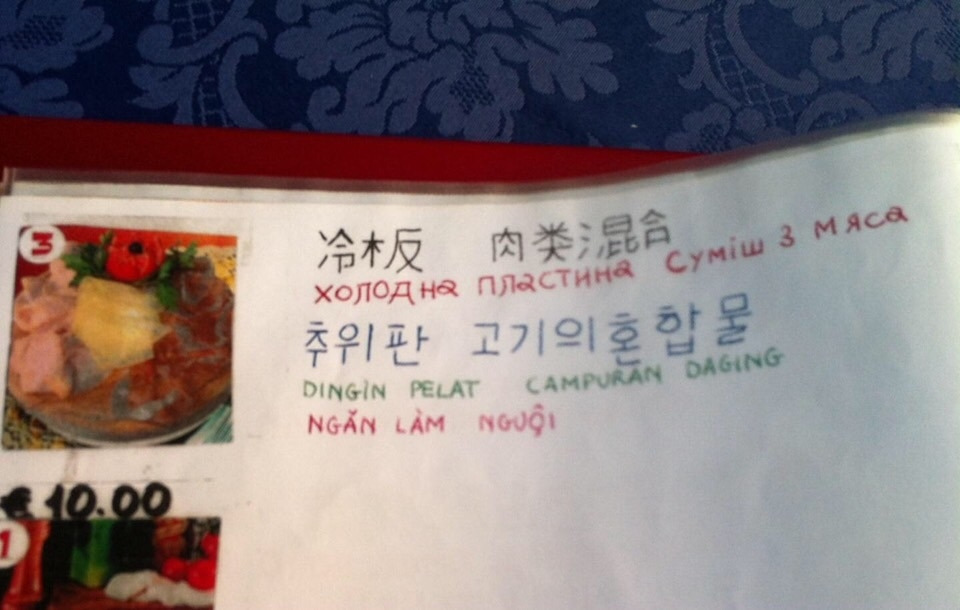 3
冷木反 肉类混合
холодна пластина Суміш з мяса
추위판 고기의혼합물
DINGIN PELAT CAMPURAN DAGING
NGĂN LÀM NGUỘI
€ 10.00
1